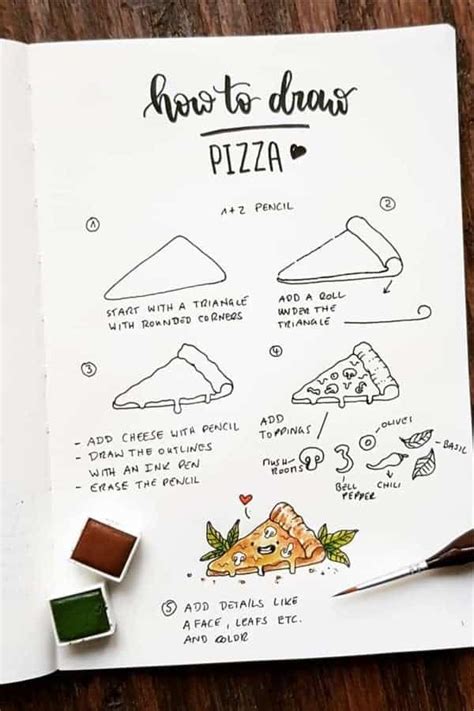 how to draw
PIZZA ♥
1+2 PENCIL
1
START WITH A TRIANGLE
WITH ROUNDED CORNERS
2
ADD A ROLL
UNDER THE
TRIANGLE
3
- ADD CHEESE WITH PENCIL
- DRAW THE OUTLINGS
WITH AN INK PEN
- ERASE THE PENCIL
4
ADD
TOPPINGS
MUSH-
ROOMS
BELL
PEPPER
OLIVES
CHILI
BASIL
5 ADD DETAILS LIKE
A FACE, LEAFS ETC.
AND COLOR